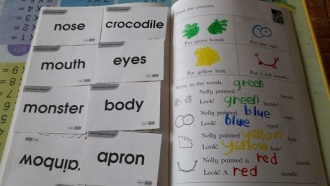 nose
crocodile
mouth
eyes
monster
body
rainbow
apron
the picture.
Put green hands.
Put blue eyes.
Put yellow hair.
Put a red mouth.
Write in the words.
Nelly painted green
Look! green hands!
Nelly painted blue
Look! blue eyes!
Nelly painted yellow
Look! yellow hair!
Nelly painted a red
Look! A red mouth!